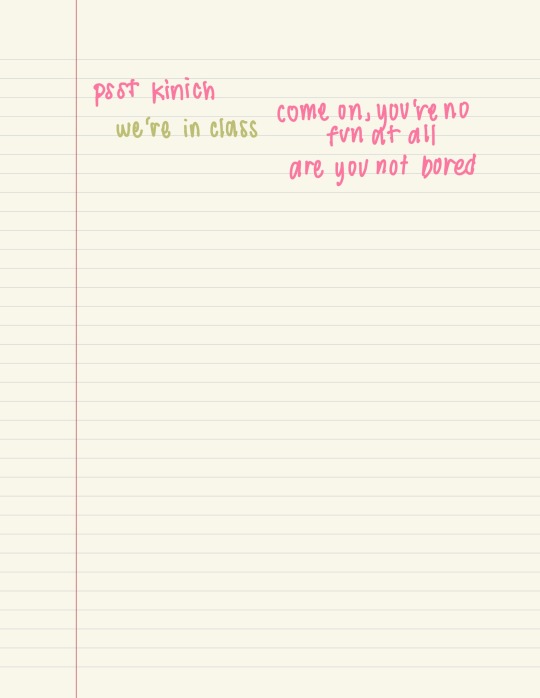 psst kinich
we're in class
come on, you're no
fun at all
are you not bored